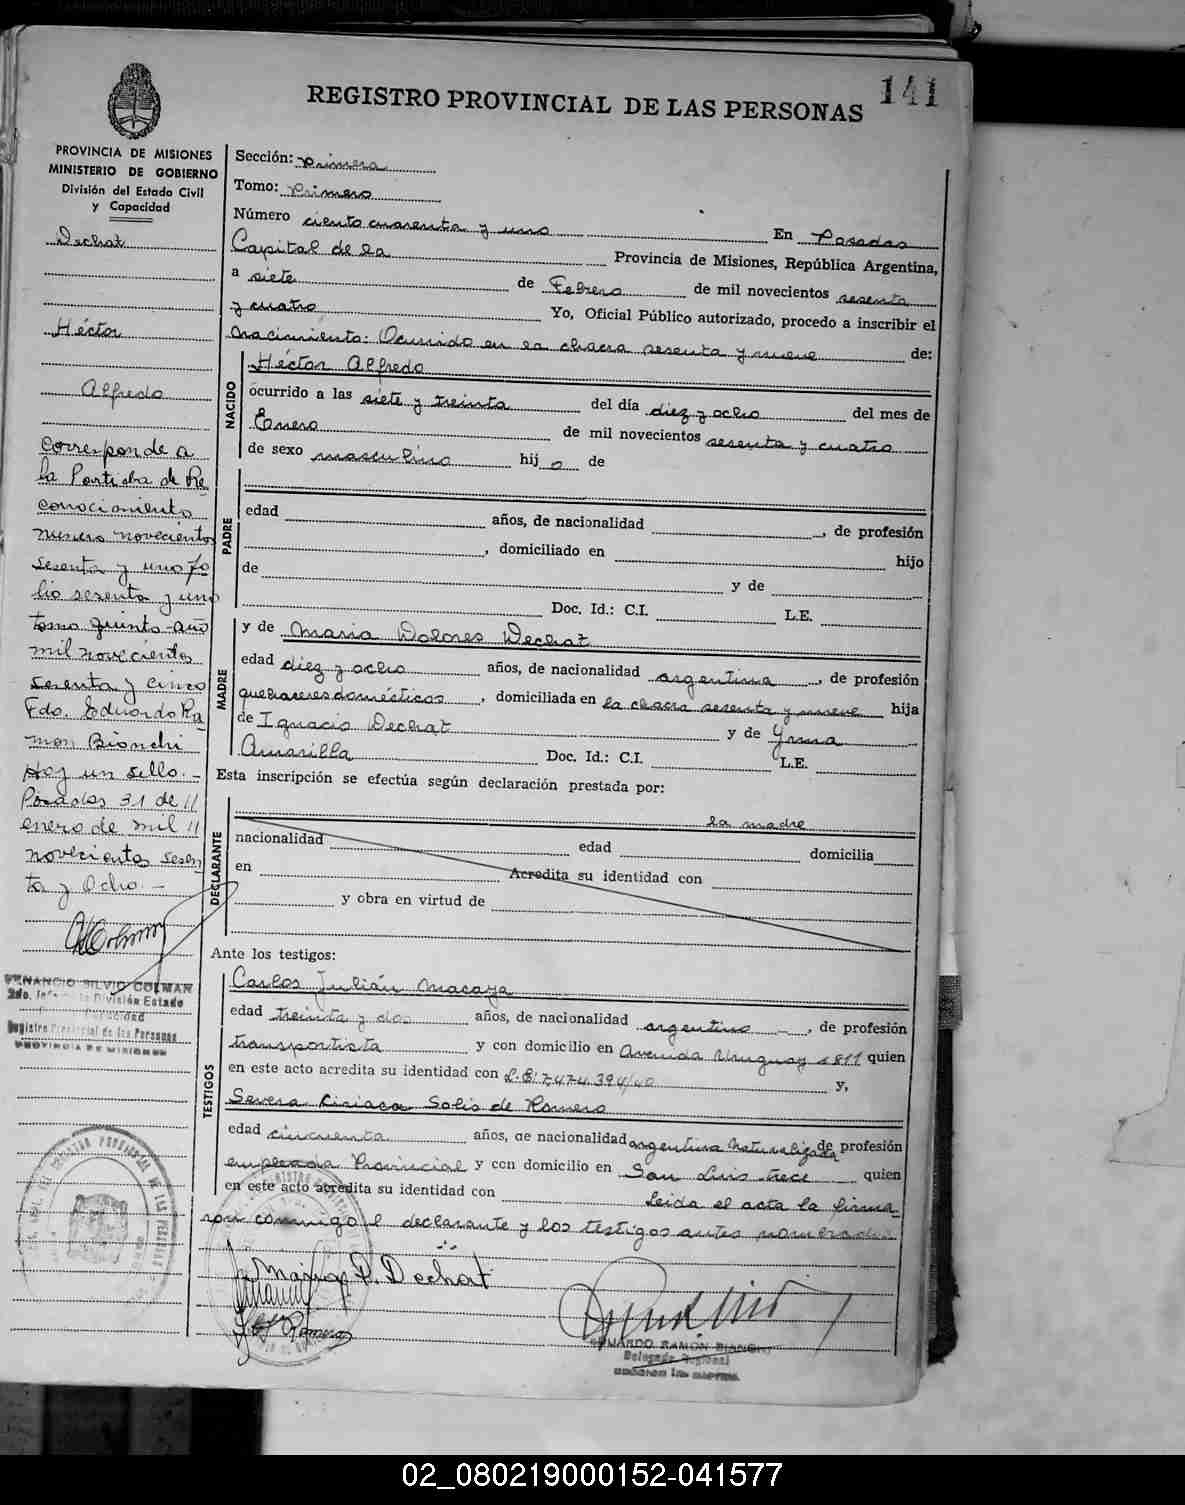 141
REGISTRO PROVINCIAL DE LAS PERSONAS
PROVINCIA DE MISIONES
MINISTERIO DE GOBIERNO
División del Estado Civil
y Capacidad
Dechat
Héctor
Alfredo
Corresponde a
la Partida de Re
conocimiento
número novecientos
sesenta y uno fo
lio sesenta y uno
tomo quinto año
mil novecientos
sesenta y cinco
Fdo. Eduardo Ra
mon Bianchi
Hay un sello. -
Posadas 31 de //
enero de mil //
novecientos sesen
ta y Ocho. -
VENANCIO SILVIO COLMAN
2do. Jefe División Estado
Capacidad
Registro Provincial de las Personas
PROVINCIA DE MISIONES
Sección: Primera
Tomo: Primero
Número ciento cuarenta y uno En Posadas
Capital de la Provincia de Misiones, República Argentina,
a siete de Febrero de mil novecientos sesenta
y cuatro Yo, Oficial Público autorizado, procedo a inscribir el
nacimiento: Ocurrido en la chacra sesenta y nueve de:
NACIDO
Héctor Alfredo
ocurrido a las siete y treinta del día diez y ocho del mes de
Enero de mil novecientos sesenta y cuatro
de sexo masculino hij o de
PADRE
edad años, de nacionalidad , de profesión
, domiciliado en hijo
de y de
Doc. Id.: C.I. L.E.
MADRE
y de Maria Dolores Dechat
edad diez y ocho años, de nacionalidad argentina , de profesión
quehaceres domésticos , domiciliada en la chacra sesenta y nueve hija
de Ignacio Dechat y de Yrma
Amarilla Doc. Id.: C.I. L.E.
Esta inscripción se efectúa según declaración prestada por:
DECLARANTE
la madre
nacionalidad edad domicilia
en Acredita su identidad con
y obra en virtud de
Ante los testigos:
TESTIGOS
Carlos Julián Macaya
edad treinta y dos años, de nacionalidad argentino - , de profesión
transportista y con domicilio en Avenida Uruguay 1811 quien
en este acto acredita su identidad con y,
Severa Ciriaca Solis de Romero
edad cincuenta años, de nacionalidad argentina Naturalizada de profesión
empleada Provincial y con domicilio en San Luis trece quien
en este acto acredita su identidad con Leida el acta la firma-
ron conmigo el declarante y los testigos antes nombrados
Maria D. Dechat
Romero
EDUARDO RAMÓN BIANCHI
Delegado Regional
02_080219000152-041577